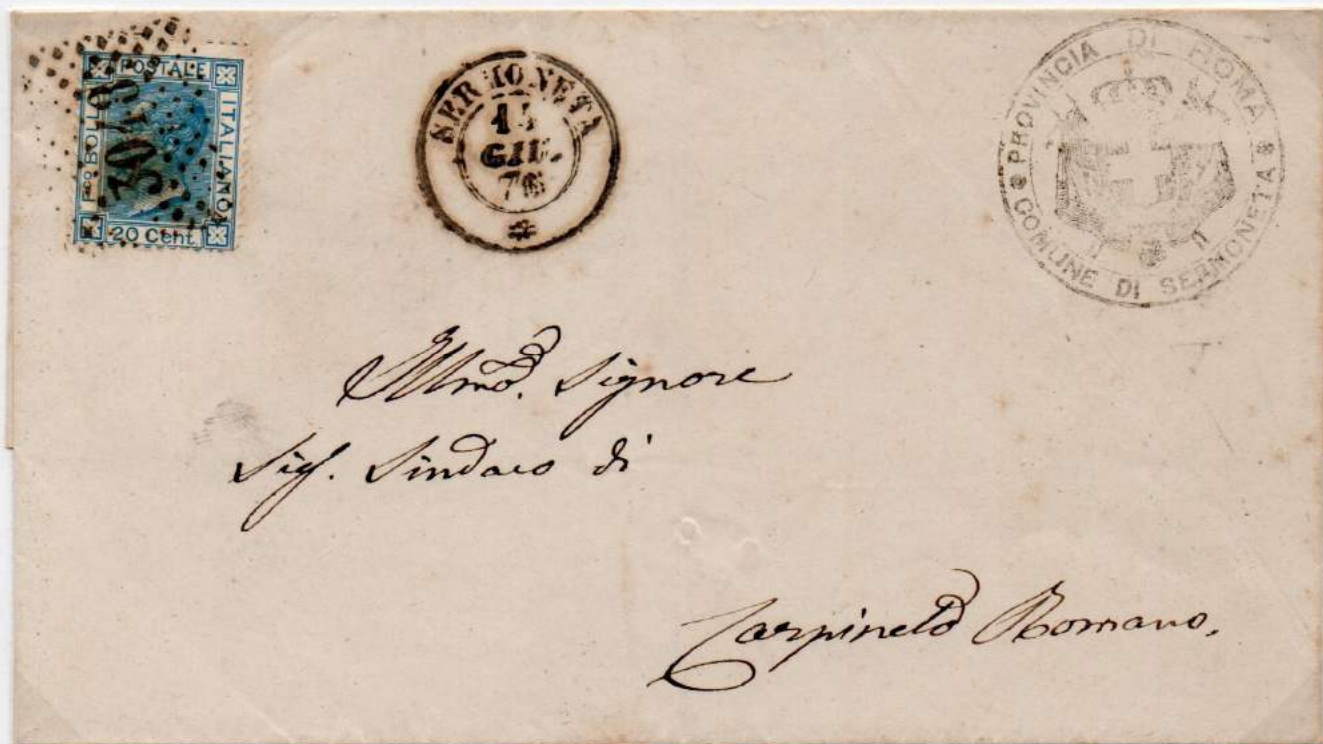 POSTALE
Fco BOLLO
ITALIANO
20 Cent.
SERMONETA
GIU.
76
PROVINCIA DI ROMA
COMUNE DI SERMONETA
Illmo. Signore
Sig. Sindaco di
Carpineto Romano.